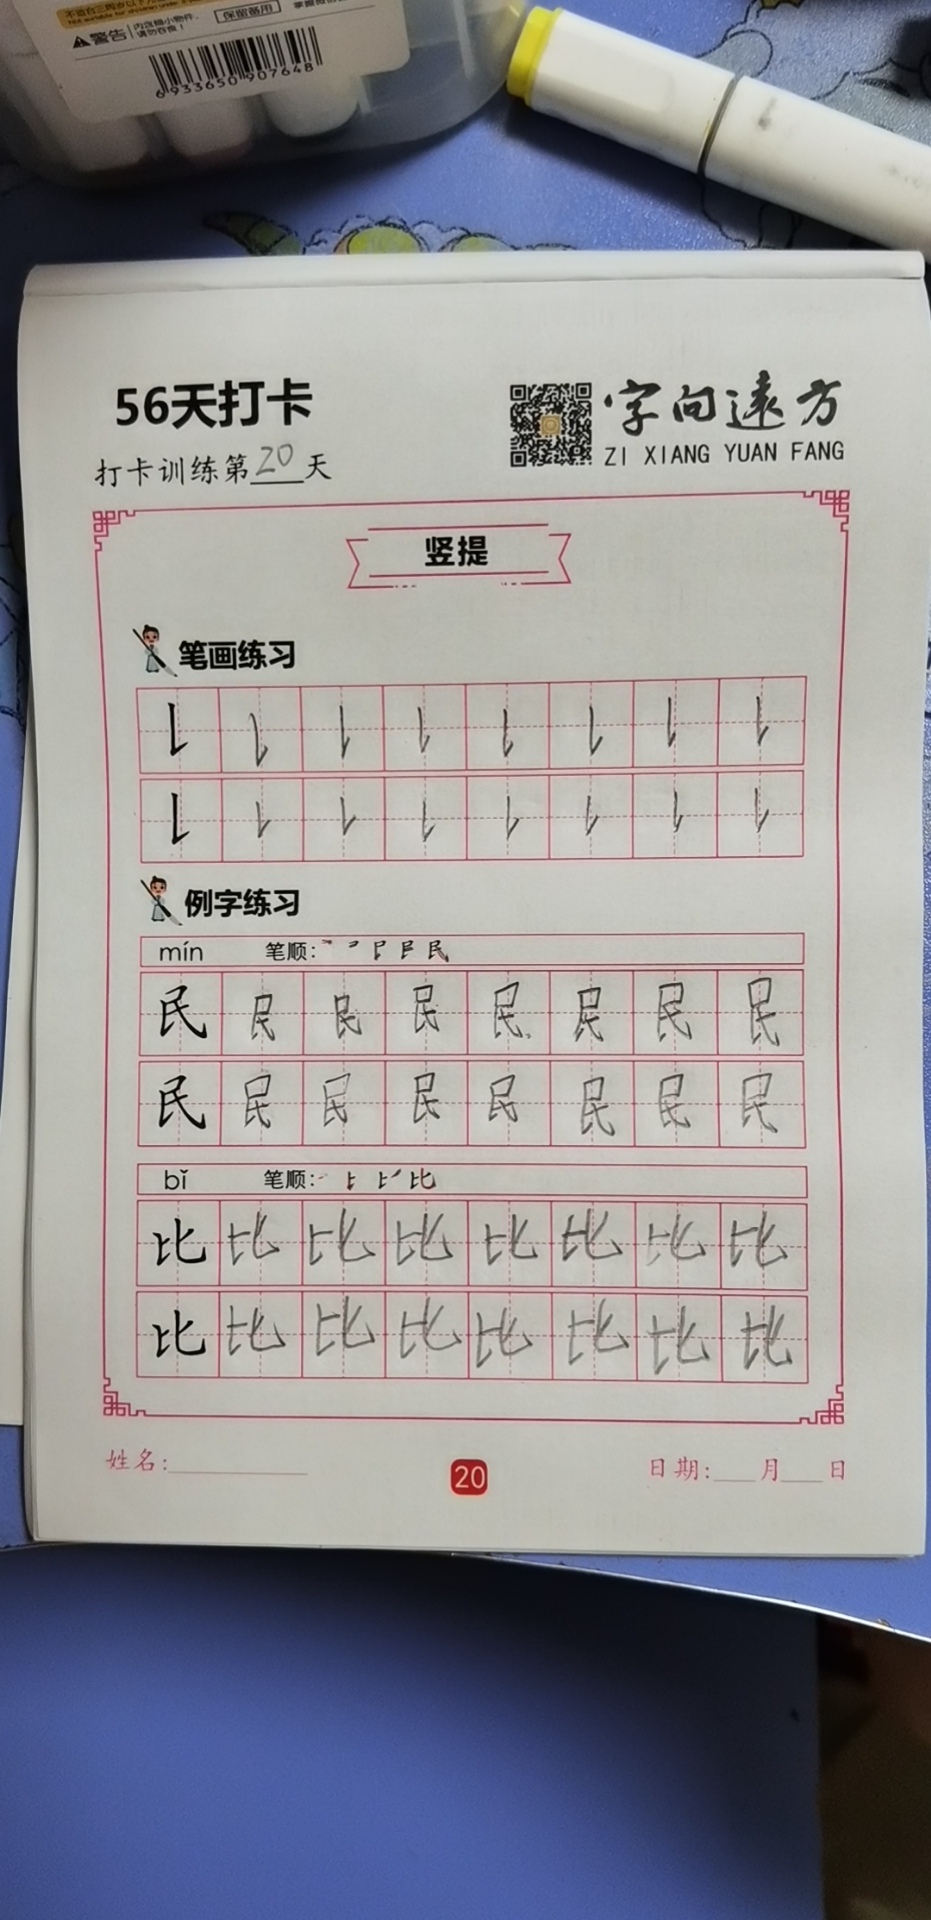 警告
内含细小物件,
请勿吞食!
保留备用
6 933650 907648
56天打卡
打卡训练第20天
字向遠方
ZI XIANG YUAN FANG
竖提
笔画练习
例字练习
mín 笔顺:
民 民 民 民 民 民 民 民
民 民 民 民 民 民 民 民
bǐ 笔顺:
比 比 比 比 比 比 比 比
比 比 比 比 比 比 比 比
姓名:
20
日期: 月 日